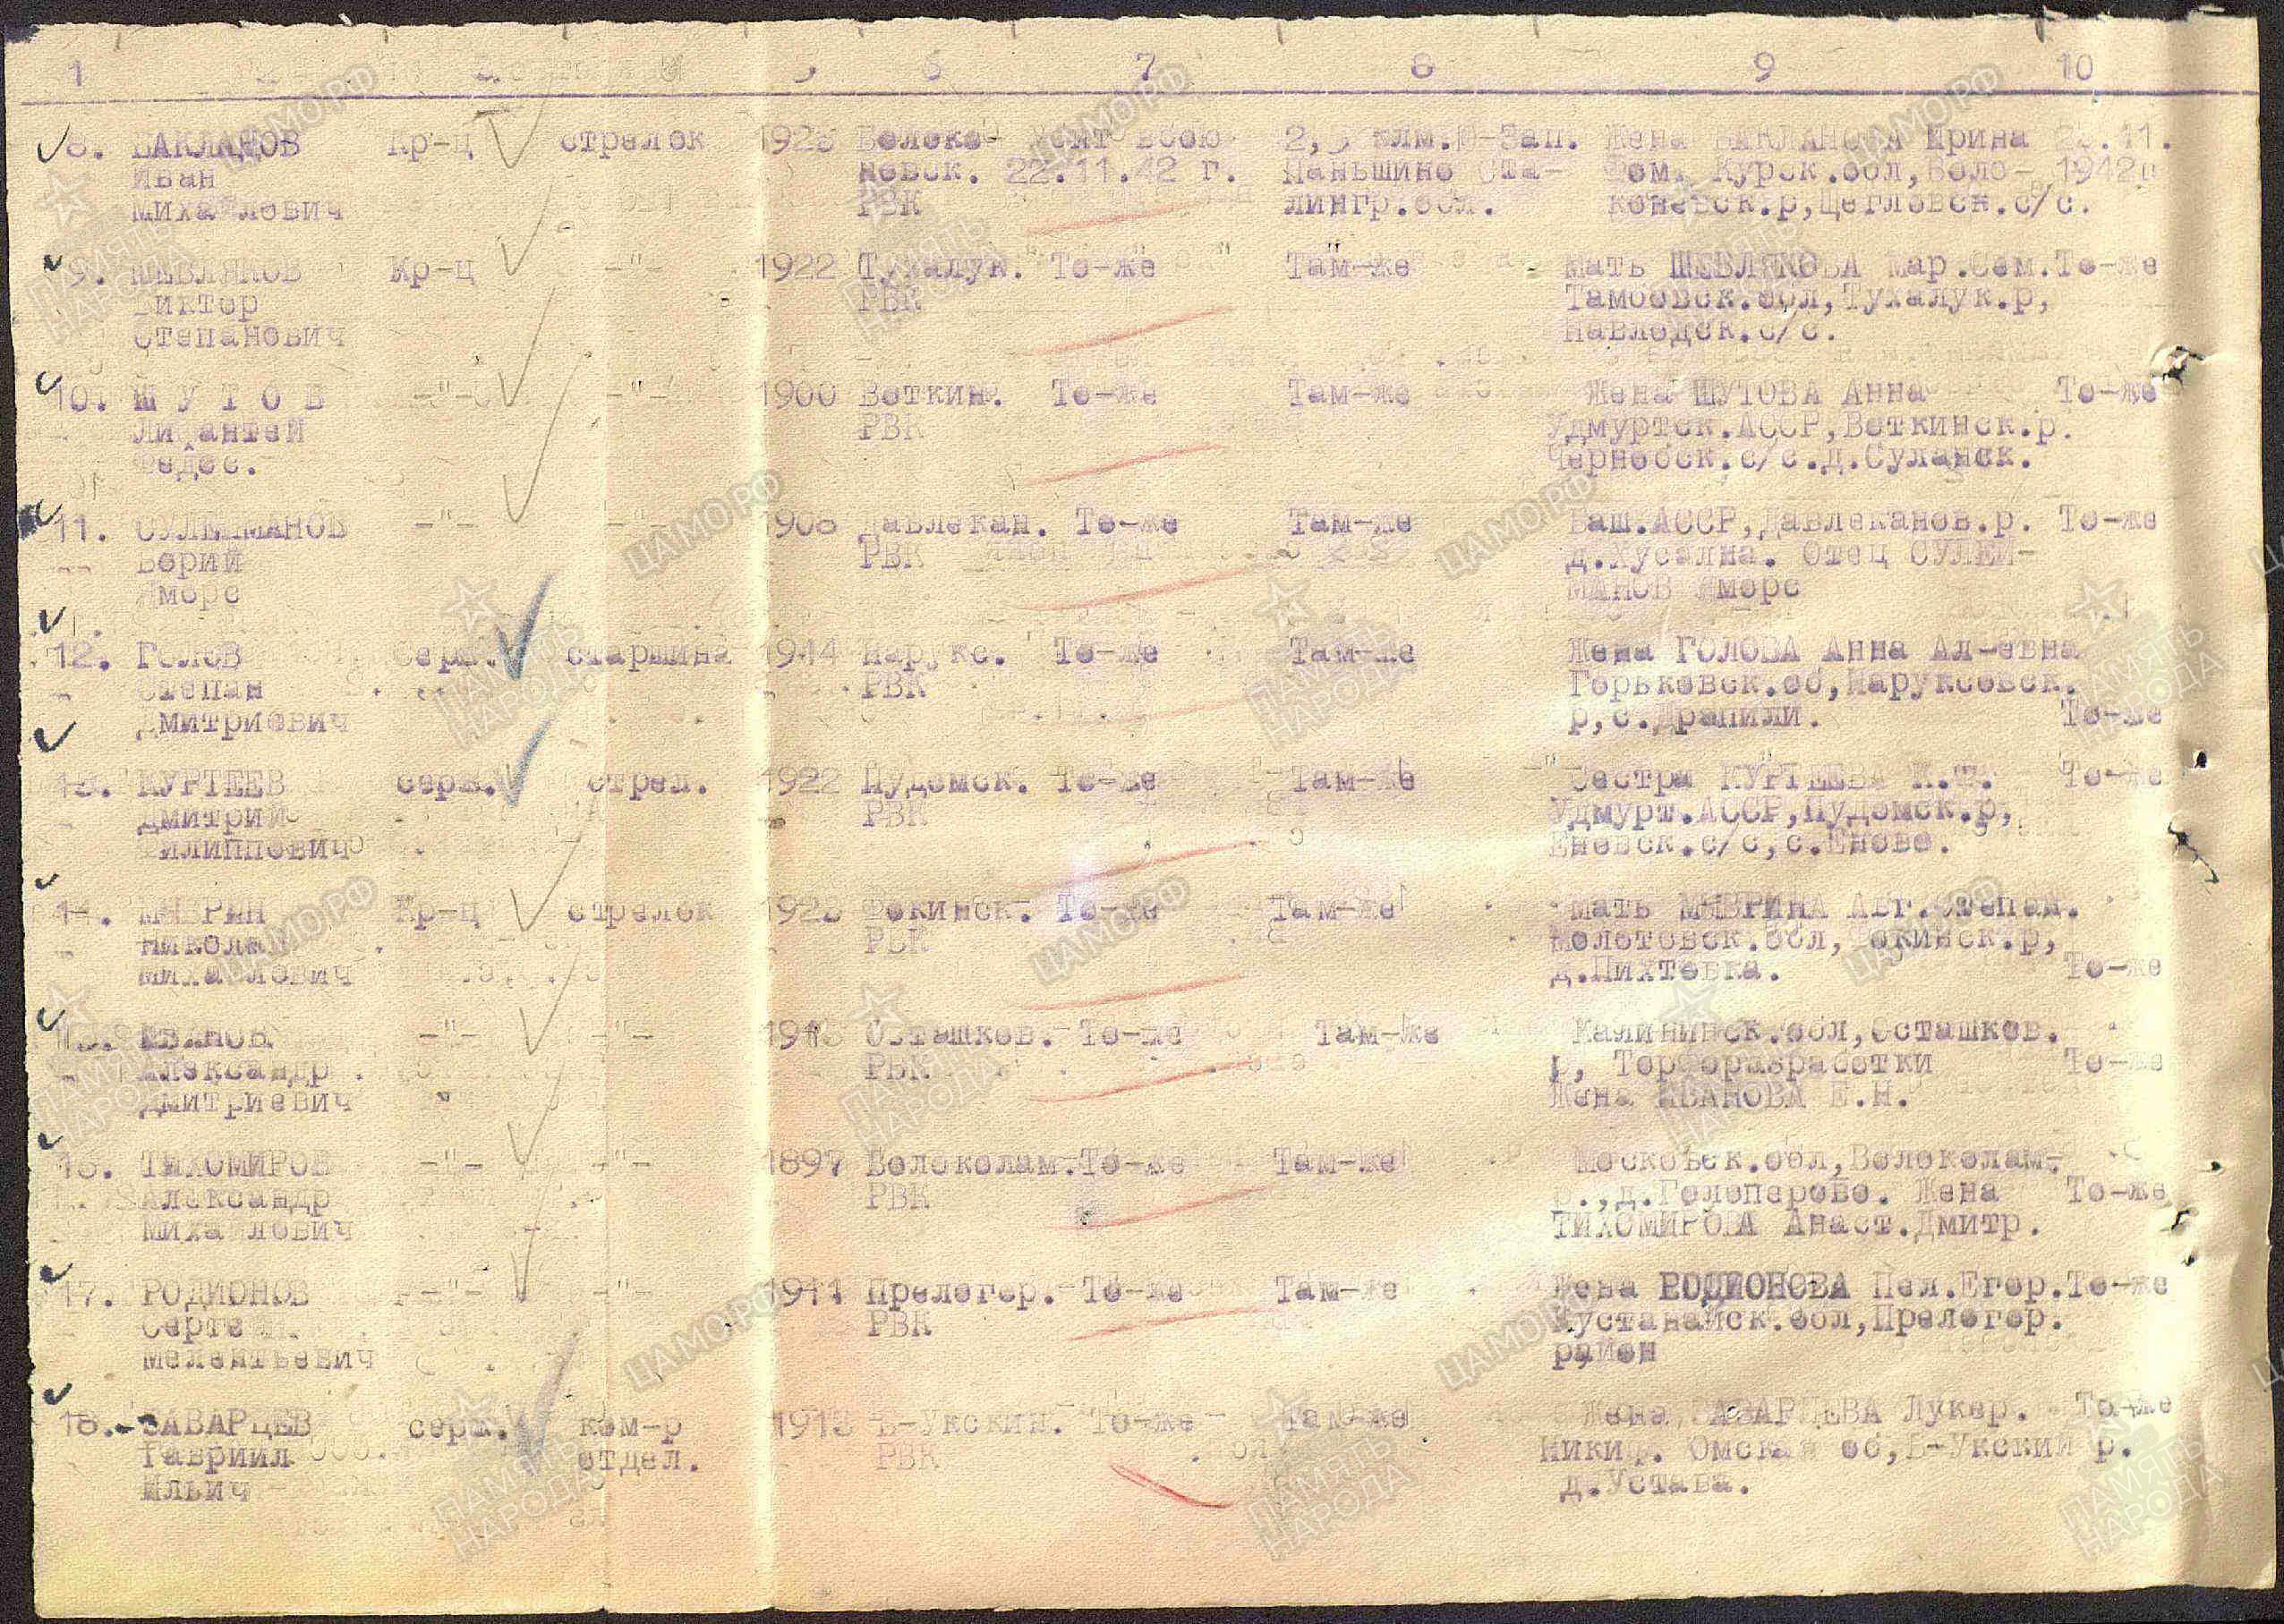 1 7 8 9 10
8. БАКЛАНОВ Кр-ц стрелок 1923 Волоко- Убит в бою 2,5 клм.Ю-Зап. Жена БАКЛАНОВА Ирина 22.11.
Иван новск. 22.11.42 г. Паньшино Ста- Фом. Курск.обл,Воло- 1942г
Миха лович РВК лингр.обл. коновск.р,Щегловск.с/с.
9. ШЕВЛЯКОВ Кр-ц -"- 1922 Тухалук. То-же Там-же Мать ШЕВЛЯКОВА Мар.Сем. То-же
Виктор РВК Тамбовск.обл,Тухалук.р,
Степанович Павлодск.с/с.
10. Ш У Т О В -"- -"- 1900 Воткин. То-же Там-же Жена ШУТОВА Анна То-же
Ли антей РВК Удмуртск.АССР,Воткинск.р.
Федос. Черновск.с/с.д.Суланск.
11. СУЛЕЙМАНОВ -"- -"- 1908 Давлекан. То-же Там-же Баш.АССР,Давлеканов.р. То-же
Борий РВК д.Хусаина. Отец СУЛЕЙ-
Яморс МАНОВ Яморс
12. Голов серж. старшина 1914 Нарукс. То-же Там-же Жена ГОЛОВА Анна Ал-евна
Степан РВК Горьковск.об,Наруксовск.
Дмитриевич р,с.Драпили. То-же
13. КУРТЕЕВ серж. стрел. 1922 Пудемск. То-же Там-же Сестра КУРТЕЕВА К.Ф. То-же
Дмитрий РВК Удмурт.АССР,Пудемск.р,
Филиппович Еновск.с/с,с.Еново.
14. МАВРИН Кр-ц стрелок 1923 Фокинск. То-же Там-же Мать МАВРИНА Авг.Степан.
Николай РВК Молотовск.обл,Фокинск.р,
Миха лович д.Пихтовка. То-же
15. ИВАНОВ -"- -"- 1913 Осташков. То-же Там-же Калининск.обл,Осташков.
Александр РВК р, Торфоразработки То-же
Дмитриевич Жена ИВАНОВА Е.Н.
16. ТИХОМИРОВ -"- -"- 1897 Волоколам. То-же Там-же Московск.обл,Волоколам-
Александр РВК р.,д.Голоперово. Жена То-же
Миха лович ТИХОМИРОВА Анаст.Дмитр.
17. РОДИОНОВ -"- -"- 1911 Прелогор. То-же Там-же Жена РОДИОНОВА Пел.Егор. То-же
Серге РВК Кустанайск.обл,Прелогор.
Мелентьевич район
18. ЗАВАРЦЕВ серж. ком-р 1913 Б-Укскин. То-же Там-же Жена ЗАВАРЦЕВА Лукер. То-же
Гавриил отдел. РВК Никиф. Омская об,Б-Укский р.
Ильич д.Устава.